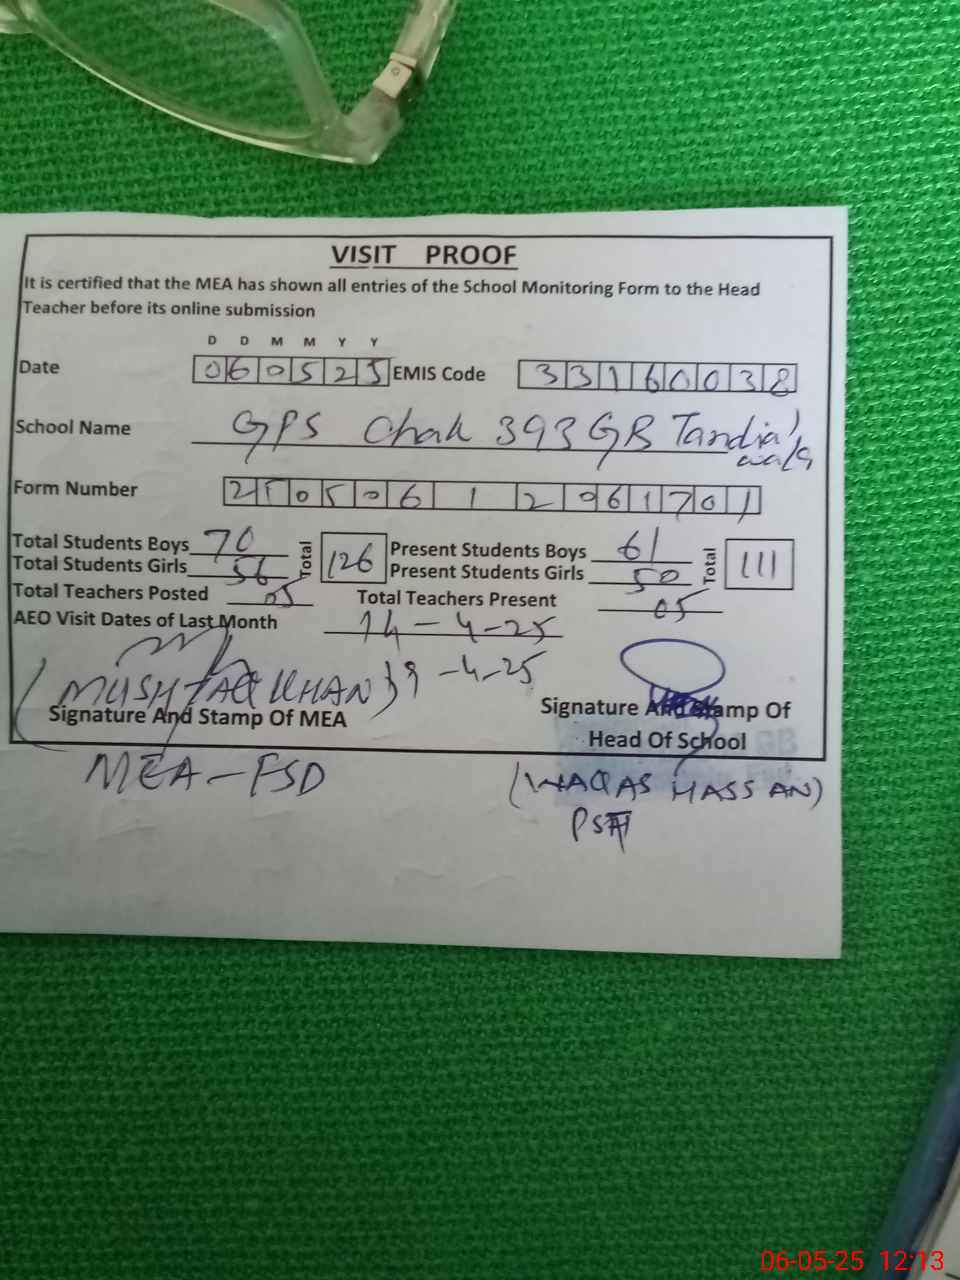 VISIT PROOF
It is certified that the MEA has shown all entries of the School Monitoring Form to the Head
Teacher before its online submission
D D M M Y Y
Date 060525 EMIS Code 33160038
School Name GPS Chak 393 GB Tandia
wala
Form Number 250506 1 2961701
Total Students Boys 70 Total 126 Present Students Boys 61 Total 111
Total Students Girls 56 Present Students Girls 50
Total Teachers Posted 05 Total Teachers Present 05
AEO Visit Dates of Last Month 14-4-25
-4-25
(MUSHTAQ KHAN)
Signature And Stamp Of MEA Signature And Stamp Of
Head Of School
MEA-FSD (WAQAS HASSAN)
PST
06-05-25 12:13